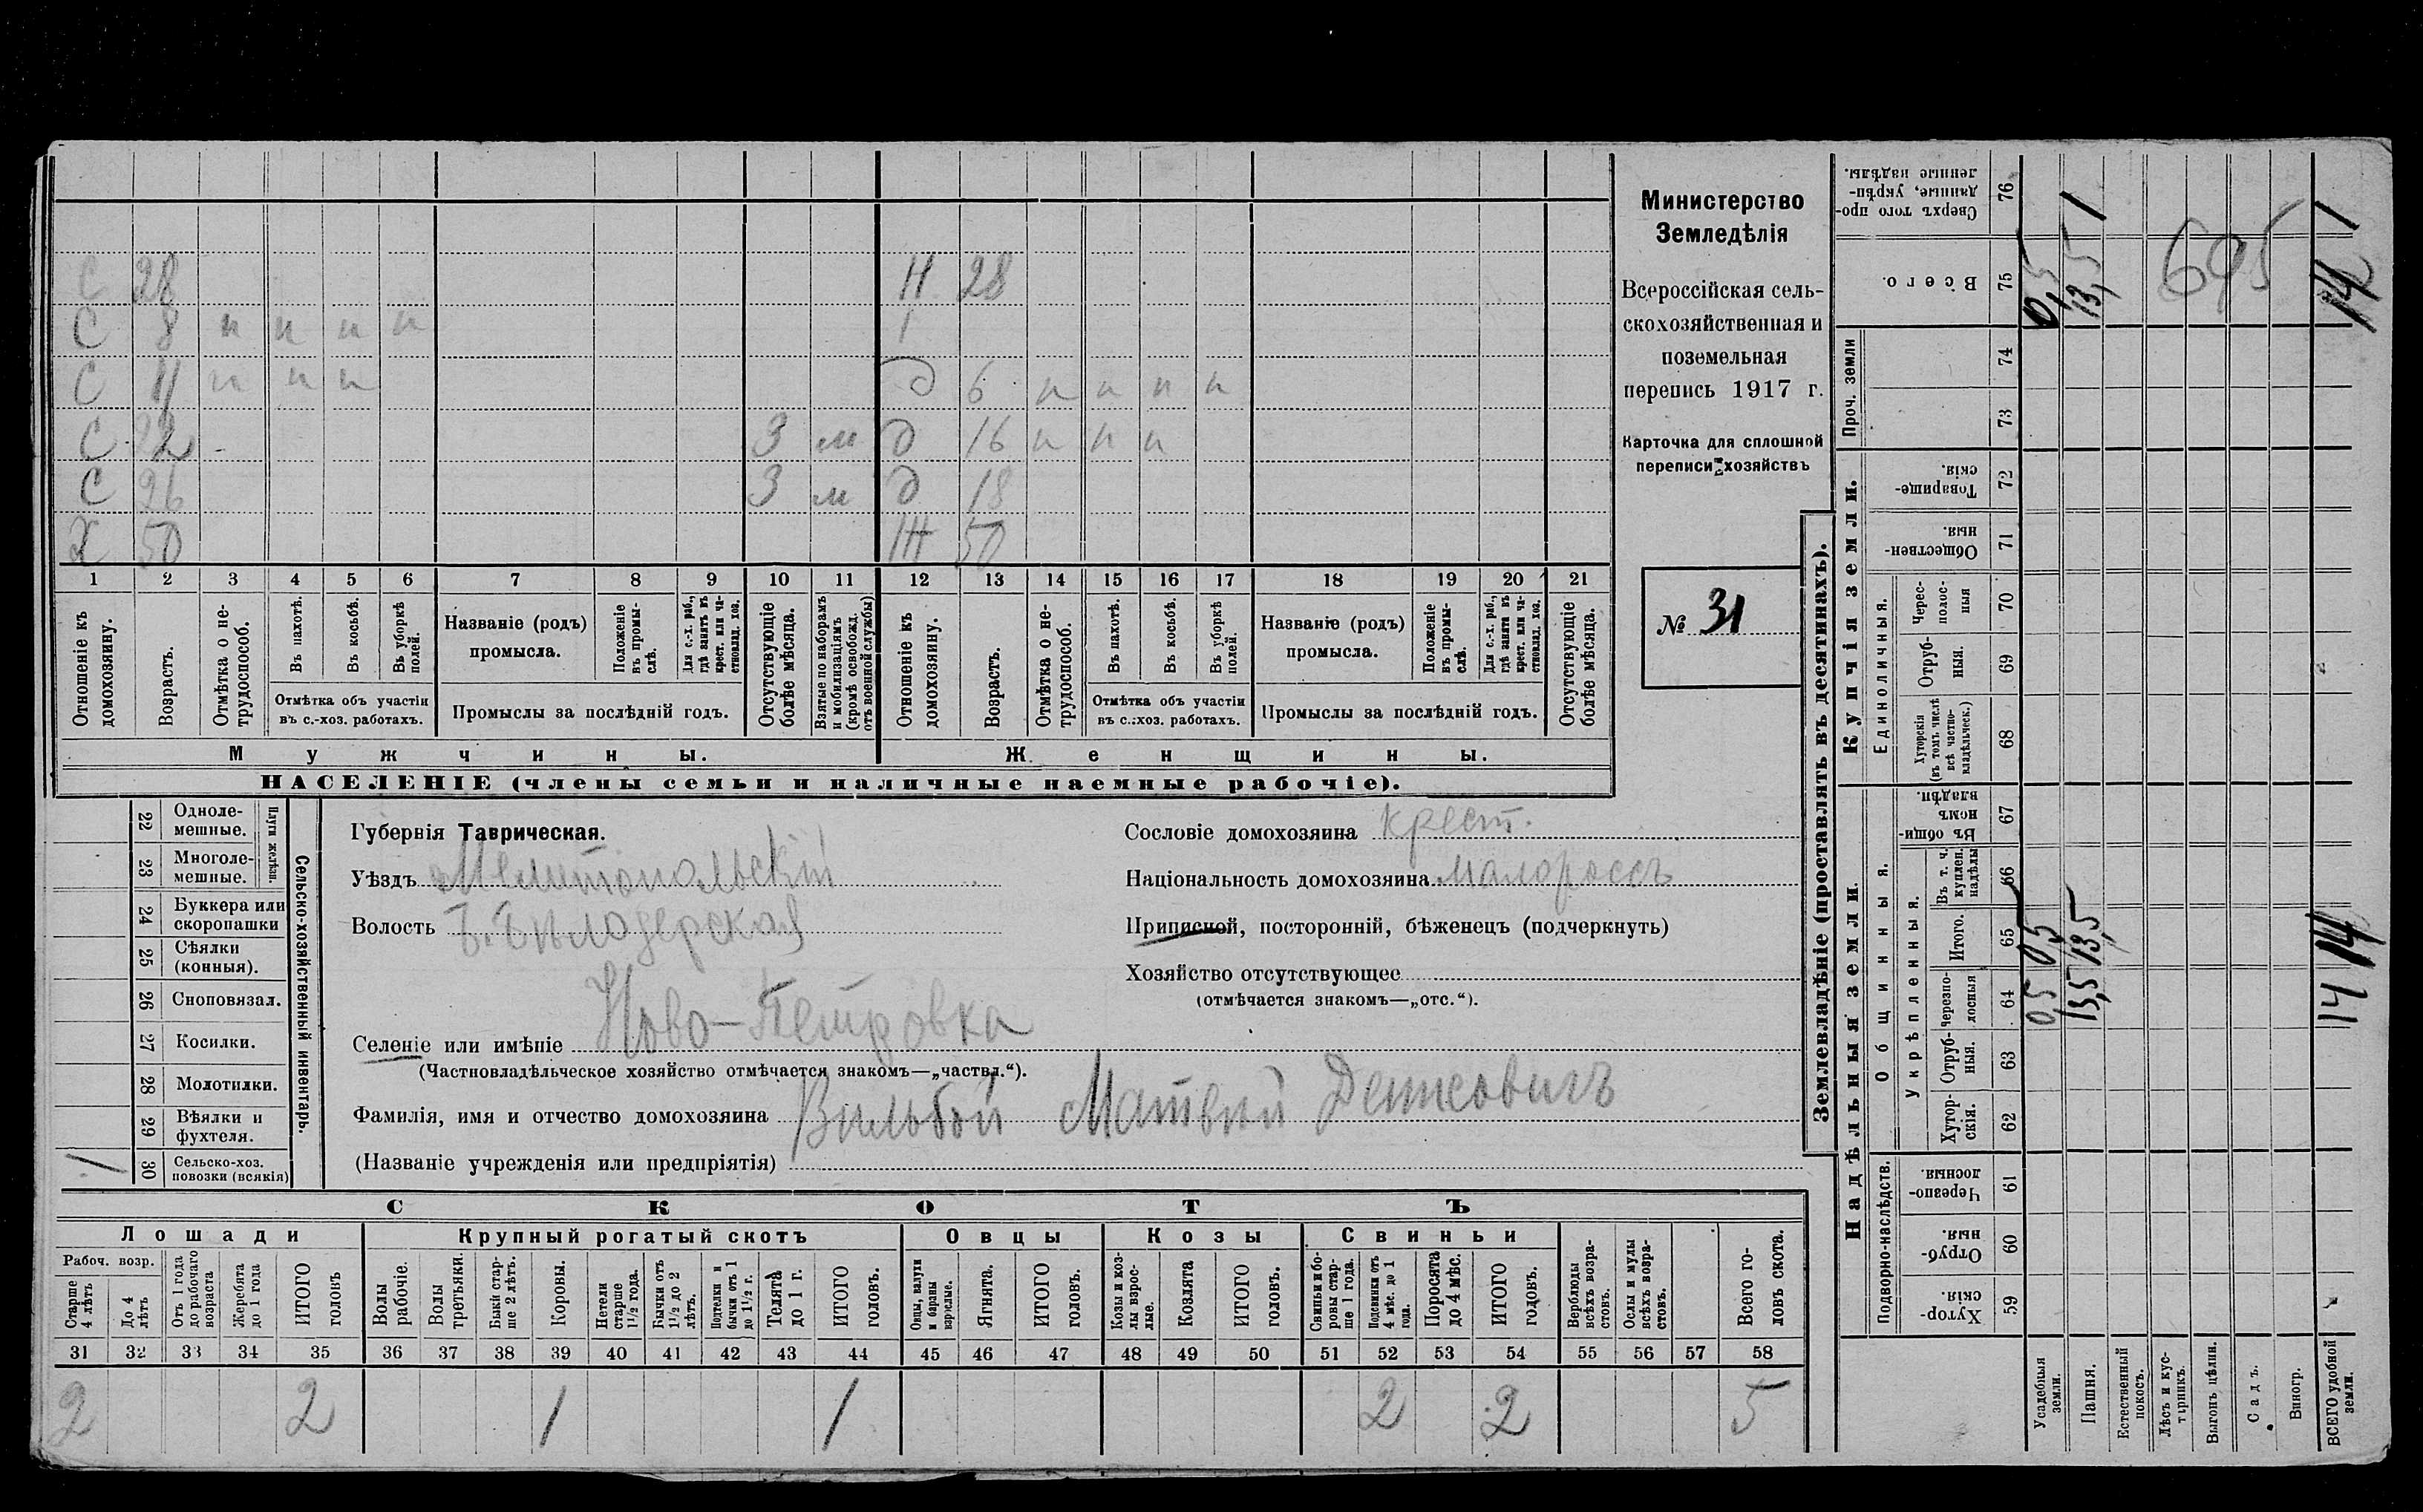 С 28 Н 28
С 8 п п п п 1
С 11 п п п д 6 п п п п
С 22 - 3 м д 16 п п п
С 26 3 м д 18
Х 50 Ж 50
1 2 3 4 5 6 7 8 9 10 11 12 13 14 15 16 17 18 19 20 21
Отношеніе къ домохозяину.
Возрастъ.
Отмѣтка о нетрудоспособ.
Въ пахотѣ.
Въ косьбѣ.
Въ уборкѣ полей.
Отмѣтка объ участіи въ с.-хоз. работахъ.
Названіе (родъ) промысла.
Положеніе въ промыслѣ.
Для с.-х. раб., гдѣ занятъ въ крест. или частновлад. хоз.
Промыслы за послѣдній годъ.
Отсутствующіе болѣе мѣсяца.
Взятые по наборамъ и мобилизаціямъ (кромѣ освобожд. отъ военной службы)
Отношеніе къ домохозяину.
Возрастъ.
Отмѣтка о нетрудоспособ.
Въ пахотѣ.
Въ косьбѣ.
Въ уборкѣ полей.
Отмѣтка объ участіи въ с.-хоз. работахъ.
Названіе (родъ) промысла.
Положеніе въ промыслѣ.
Для с.-х. раб., гдѣ занята въ крест. или частновлад. хоз.
Промыслы за послѣдній годъ.
Отсутствующіе болѣе мѣсяца.
Мужчины. Женщины.
НАСЕЛЕНІЕ (члены семьи и наличные наемные рабочіе).
Министерство
Земледѣлія
Всероссійская сель-
скохозяйственная и
поземельная
перепись 1917 г.
Карточка для сплошной
переписи хозяйствъ
№ 31
22 Одноле-
мешные.
23 Многоле-
мешные.
Плуги желѣзн.
24 Буккера или
скоропашки
25 Сѣялки
(конныя).
26 Сноповязал.
27 Косилки.
28 Молотилки.
29 Вѣялки и
фухтеля.
1 30 Сельско-хоз.
повозки (всякія)
Сельско-хозяйственный инвентарь.
Губернія Таврическая.
Уѣздъ Мелитопольскій
Волость Б. Бѣлозерская
Селеніе или имѣніе Ново-Петровка
(Частновладѣльческое хозяйство отмѣчается знакомъ—„частвл.“).
Фамилія, имя и отчество домохозяина Матвѣй
(Названіе учрежденія или предпріятія)
Сословіе домохозяина крест.
Національность домохозяина малороссъ
Приписной, посторонній, бѣженецъ (подчеркнуть)
Хозяйство отсутствующее
(отмѣчается знакомъ—„отс.“).
СКОТЪ
Лошади Крупный рогатый скотъ Овцы Козы Свиньи
Рабоч. возр.
Старше 4 лѣтъ
До 4 лѣтъ
Отъ 1 года до рабочаго возраста
Жеребята до 1 года
ИТОГО головъ
Волы рабочіе.
Волы третьяки.
Быки старше 2 лѣтъ.
Коровы.
Нетели старше 1½ года.
Бычки отъ 1½ до 2 лѣтъ.
Подтелки и бычки отъ 1 до 1½ г.
Телята до 1 г.
ИТОГО головъ.
Овцы, валухи и бараны взрослые.
Ягнята.
ИТОГО головъ.
Козы и козлы взрослые.
Козлята
ИТОГО головъ.
Свиньи и боровы старше 1 года.
Подсвинки отъ 4 мѣс. до 1 года.
Поросята до 4 мѣс.
ИТОГО головъ.
Верблюды всѣхъ возрастовъ.
Ослы и мулы всѣхъ возрастовъ.
Всего головъ скота.
31 32 33 34 35 36 37 38 39 40 41 42 43 44 45 46 47 48 49 50 51 52 53 54 55 56 57 58
2 2 1 1 2 2 5
Землевладѣніе (проставлять въ десятинахъ).
Надѣльныя земли. Купчія земли. Проч. земли
Подворно-наслѣдств. Общинныя. Единоличныя.
Укрѣпленныя.
Хуторскія. 59
Отрубныя. 60
Черезполосныя. 61
Хуторскія. 62
Отрубныя. 63
Черезполосныя 64
Итого. 65
Въ т. ч. куплен. надѣлы 66
Въ общинномъ владѣн. 67
Хуторскія (въ томъ числѣ всѣ частновладѣльческ.) 68
Отрубныя. 69
Чересполосныя 70
Общественныя. 71
Товарищескія. 72
73
74
Всего. 75
Сверхъ того проданные, укрѣпленные надѣлы. 76
Усадебныя земли. 0,5 0,5 0,5
Пашня. 13,5 13,5 13,5 1
Естественный покосъ.
Лѣсъ и кустарникъ.
Выгонъ цѣлин.
Садъ.
Виногр.
ВСЕГО удобной земли. 14 14 14 1
695